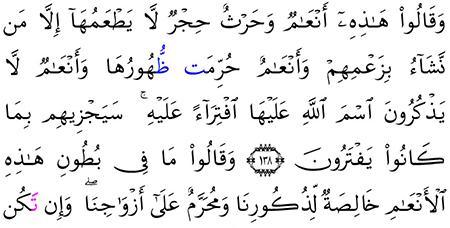 وَقَالُوا۟ هَـٰذِهِۦٓ أَنْعَـٰمٌ وَحَرْثٌ حِجْرٌ لَّا يَطْعَمُهَآ إِلَّا مَن
نَّشَآءُ بِزَعْمِهِمْ وَأَنْعَـٰمٌ حُرِّمَت ظُّهُورُهَا وَأَنْعَـٰمٌ لَّا
يَذْكُرُونَ ٱسْمَ ٱللَّهِ عَلَيْهَا ٱفْتِرَآءً عَلَيْهِ ۚ سَيَجْزِيهِم بِمَا
كَانُوا۟ يَفْتَرُونَ ﴿١٣٨﴾ وَقَالُوا۟ مَا فِى بُطُونِ هَـٰذِهِ
ٱلْأَنْعَـٰمِ خَالِصَةٌ لِّذُكُورِنَا وَمُحَرَّمٌ عَلَىٰٓ أَزْوَٰجِنَا ۖ وَإِن تَكُن